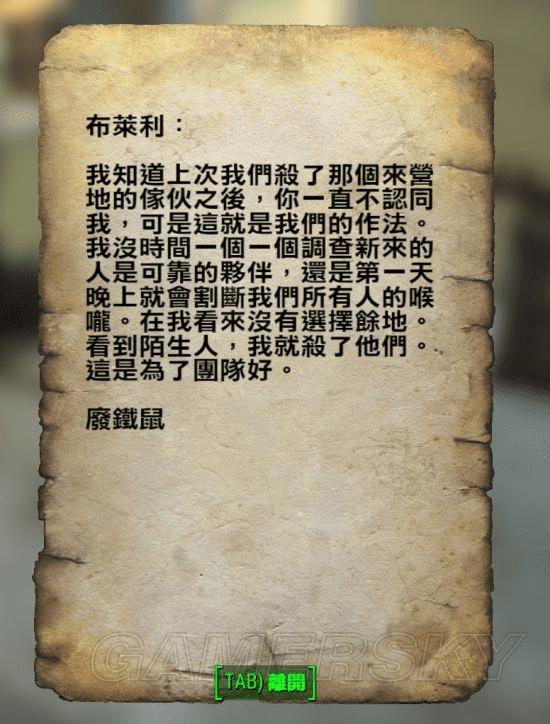 布萊利：
我知道上次我們殺了那個來營
地的傢伙之後，你一直不認同
我，可是這就是我們的作法。
我沒時間一個一個調查新來的
人是可靠的夥伴，還是第一天
晚上就會割斷我們所有人的喉
嚨。在我看來沒有選擇餘地。
看到陌生人，我就殺了他們。
這是為了團隊好。
廢鐵鼠
GAMERSKY
[TAB) 離開]